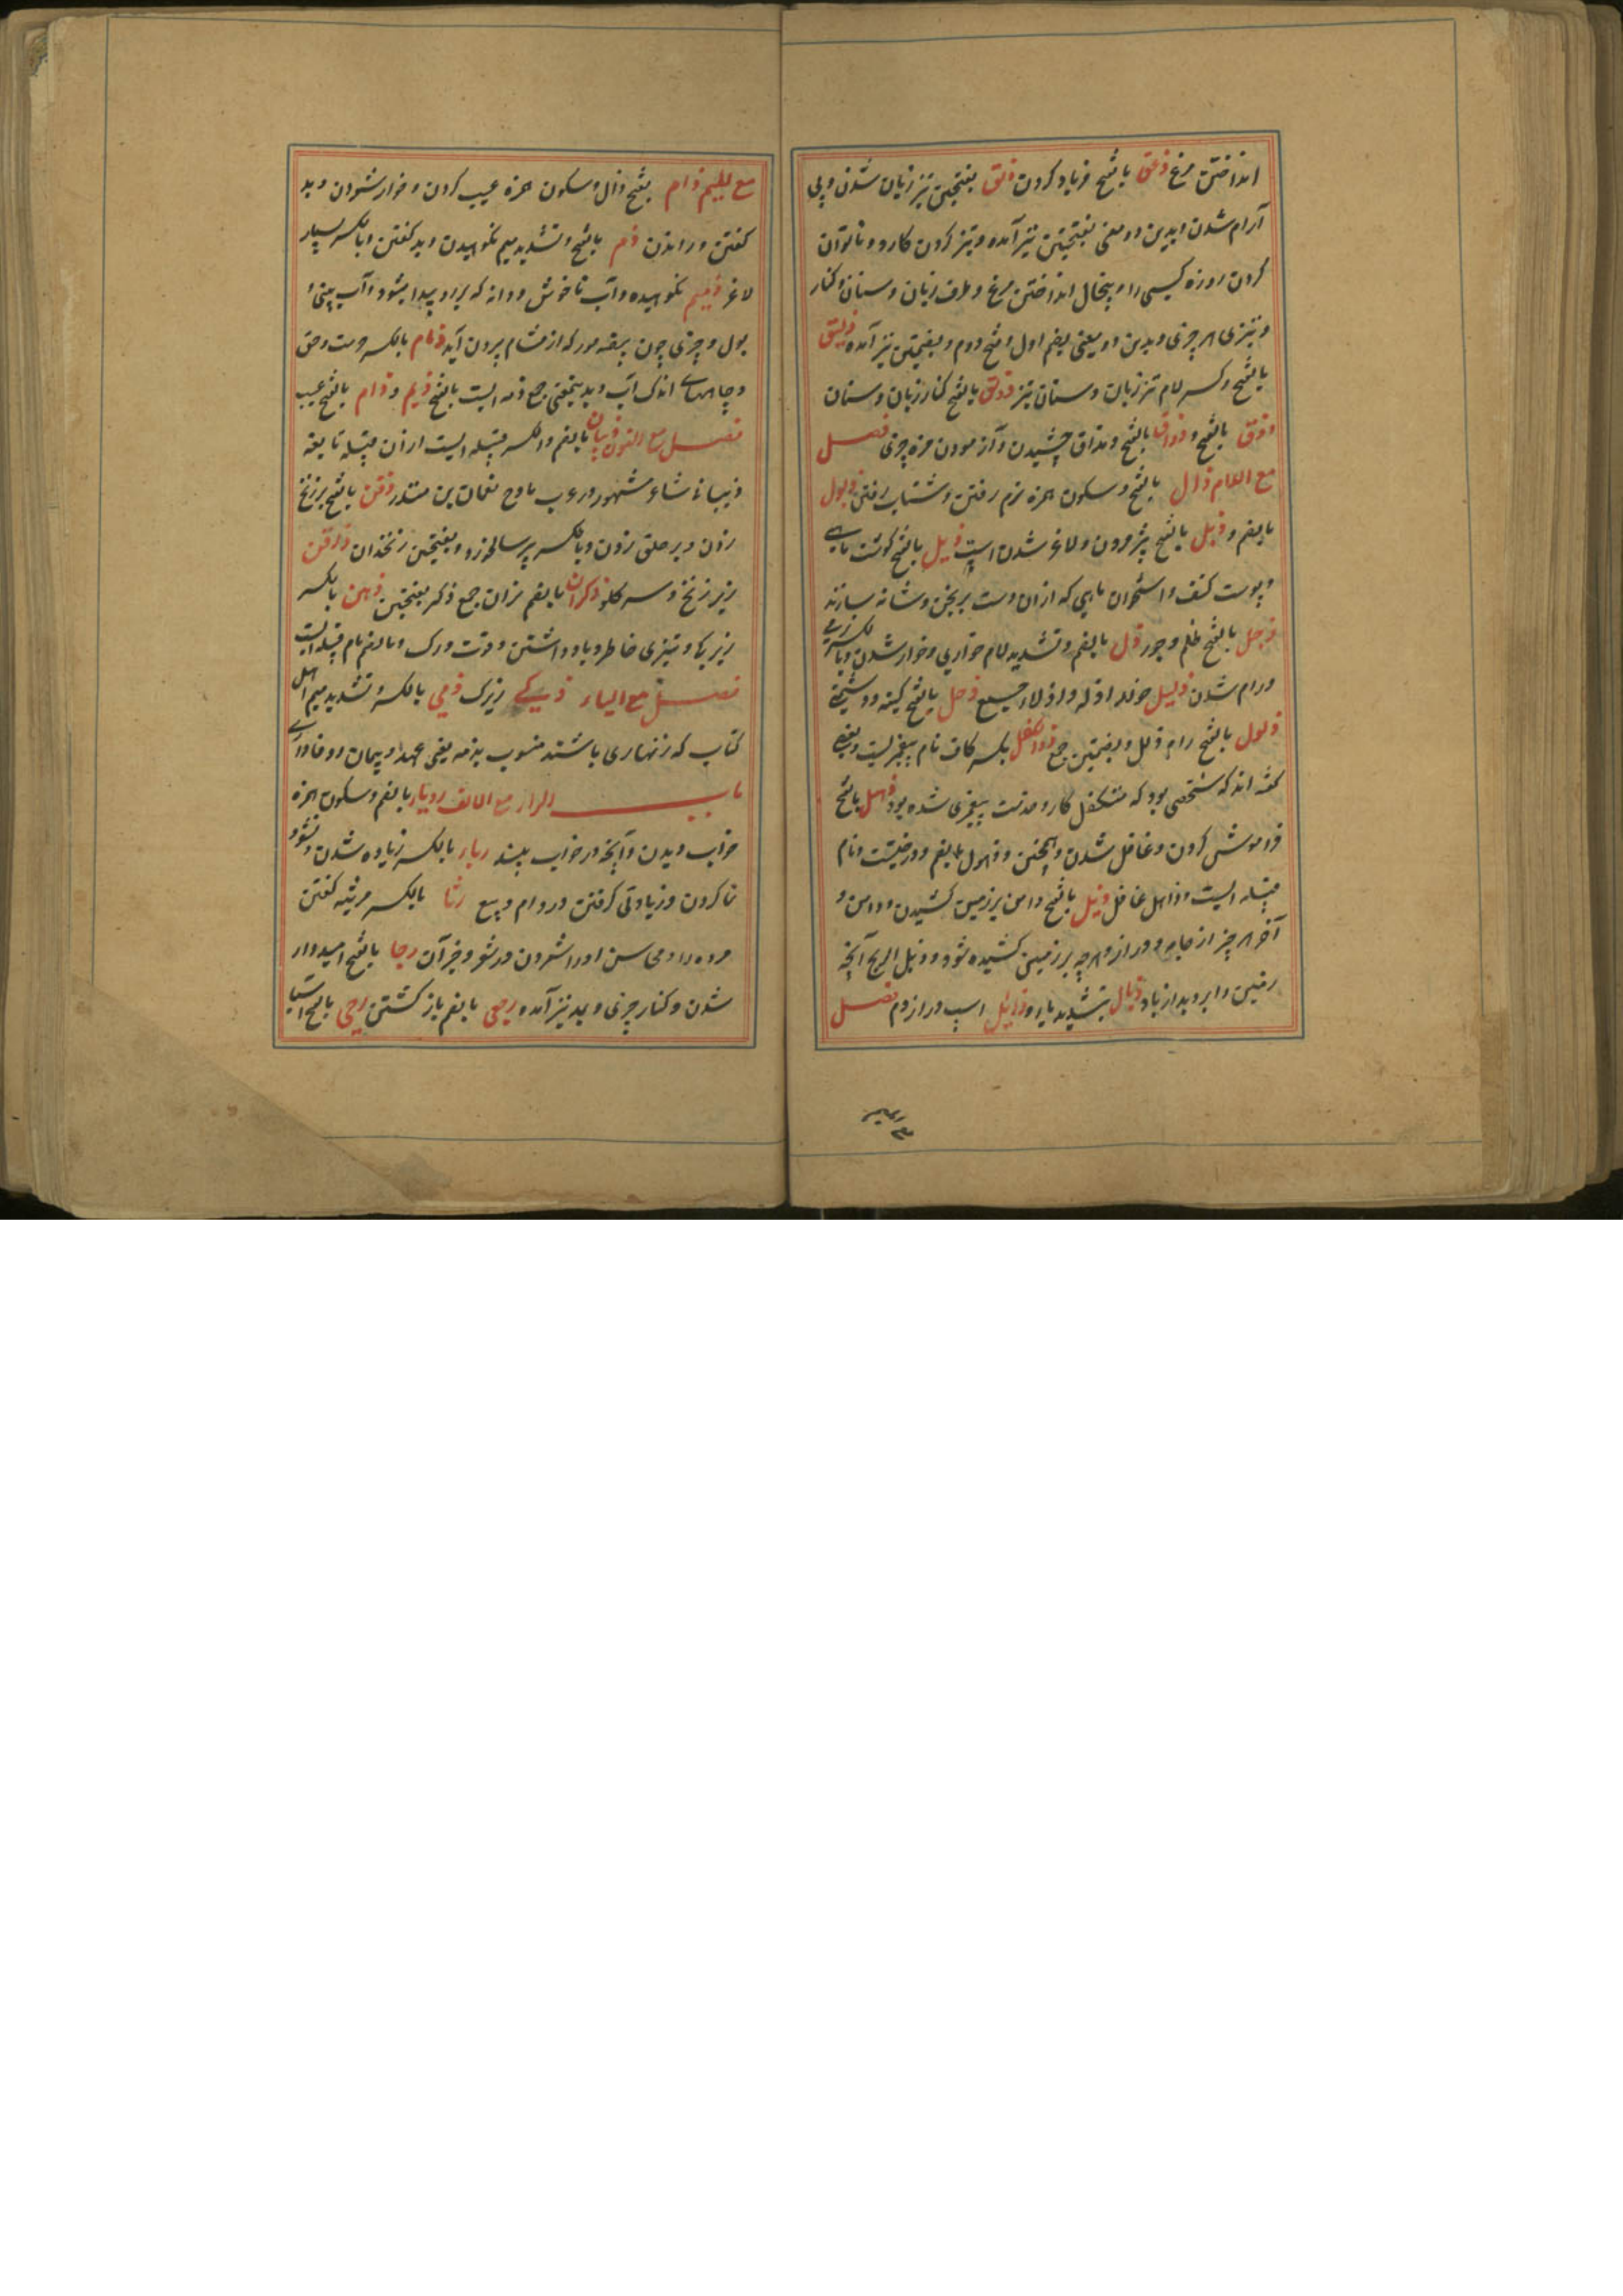 انداختن مرغ ذعق بالفتح فریاد کردن ذلق بفتحتین تیز زبان شدن و بی
آرام شدن و بدین دو معنی بفتحتین نیز آمده و تیز کردن کارد و ناتوان
کردن روزه کسی را و پیخال انداختن مرغ و طرف زبان و سنان و کنار
و تیزی هر چیزی و بدین دو معنی بضم اول و فتح دوم و بضمتین نیز آمده ذلیق
بالفتح و کسر لام تیز زبان و سنان تیز ذولق بالفتح کنار زبان و سنان
ذوق بالفتح و ذواق بالفتح و مذاق چشیدن و آزمودن مزه چیزی فصل
مع اللام ذال بالفتح و سکون همزه نرم رفتن و شتاب رفتن ذبول
بالضم و ذبل بالفتح پژمردن و لاغر شدن اسپ ذبل بالفتح گوشت ماهی
و پوست کشف و استخوان ماهی که ازان دست برنجن و شانه سازند
ذحل بالفتح ظلم و جور ذل بالضم و تشدید لام خواری و خوار شدن و بالکسر نرمی
و رام شدن ذلیل خوار اذله و اذلاء جمع ذحل بالفتح کینه و دشمنی
ذلول بالفتح رام ذلل بضمتین جمع ذوالکفل بکسر کاف نام پیغمبریست و بعضی
گفته اند که شخصی بود که متکفل کار و خدمت پیغمبری شده بود ذهل بالفتح
فراموش کردن و غافل شدن و همچنین ذهول بالضم و درختیست و نام
قبیله ایست و ذاهل غافل ذیل بالفتح دامن بر زمین کشیدن و دامن و
آخر هر چیز از جامه و دراز و هرچه بر زمین کشیده شود و ذیل الریح آنچه
زمین را بروبد از باد ذیال بتشدید یا و ذایل اسپ دراز دم فصل
مع المیم ذام بفتح ذال و سکون همزه عیب کردن و خوار شمردن و بد
گفتن و راندن ذم بالفتح و تشدید میم نکوهیدن و بد گفتن و بالکسر بسیار
لاغر ذمیم نکوهیده و آب ناخوش و دانه که بر رو پیدا میشود و آب بینی و
بول و چیزی چون بیضه مور که از مشام بیرون آید ذمام بالکسر حرمت و حق
و چاههای اندک آب و بدینمعنی جمع ذمه است بالفتح ذیم و ذام بالفتح عیب
فصل مع النون ذبیان بالضم و الکسر قبیله ایست ازان قبیله نابغه
ذبیانی شاعر مشهور عرب مادح نعمان بن منذر ذقن بالفتح بر زنخ
زدن و بر حلق زدن و بالکسر پیر سالخورد و بفتحتین زنخدان ذاقن
زیر زنخ و سر گلو ذکران بالضم نران جمع ذکر بفتحتین ذهن بالکسر
زیرکی و تیزی خاطر و یاد داشتن و قوت درک و بالضم نام قبیله ایست
فصل مع الیاء ذکی زیرک ذمی بالکسر و تشدید میم اهل
کتاب که زنهاری باشند منسوب بذمه یعنی عهد و پیمان و وفاداری
باب الراء مع الالف رویا بالضم و سکون همزه
خواب دیدن و آنچه در خواب بینند رباء بالکسر زیاده شدن و نشو و
نما کردن و زیادتی گرفتن در وام و بیع رثا بالکسر مرثیه گفتن
مرده را و محاسن او را شمردن در شعر و جز آن رجا بالفتح امیدوار
شدن و کنار چیزی و بمد نیز آمده رجعی بالضم بازگشتن رحی بالفتح آسیا